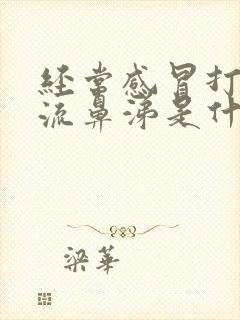 经常感冒打
流鼻涕是什
梁華